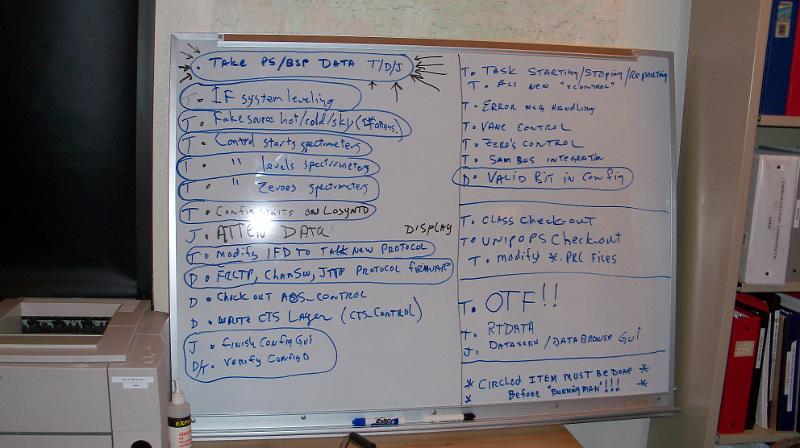 • TAKE PS/BSP DATA T/D/J
T• IF system leveling
T• Fake source hot/cold/sky (IF attens)
T• Control starts spectrometers
T• " levels spectrometers
T• " Zeroes spectrometers
T• Config waits on LOSYNTD
J• ATTEN DATA DISPLAY
T• modify IFD to talk new protocol
D• CHANSW, PROTOCOL FIRMWARE
D• Check out AOS_CONTROL
D• WRITE CTS Layer (CTS_CONTROL)
J• Finish Config Gui
D/T• Verify ConfigD
T• TASK STARTING/STOPING/REPORTING
T• ALL NEW "XCONTROL"
T• ERROR MSG HANDLING
T• VANE CONTROL
T• ZERO'S CONTROL
T• SAM BUS INTEGRATION
D• VALID BIT IN Config
T• CLASS Check-out
T• UNIPOPS Check-out
T• modify *.PRC FILES
T• OTF!!
T• RTDATA
J• DATASERV/DATABROWSE Gui
* CIRCLED ITEM MUST BE DONE *
* BEFORE "BURNINGMAN"!!! *
EXPO